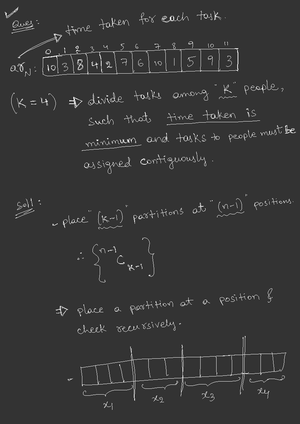 Ques:
time taken for each task.
0 1 2 3 4 5 6 7 8 9 10 11
arr_N: 10 3 8 4 2 7 6 10 1 5 9 3
(K = 4) ⇒ divide tasks among "K" people,
such that time taken is
minimum and tasks to people must be
assigned contiguously.
Sol!:
- place "(k-1)" partitions at "(n-1)" positions.
∴ { n-1 C k-1 }
⇒ place a partition at a position &
check recursively.
x1 x2 x3 x4